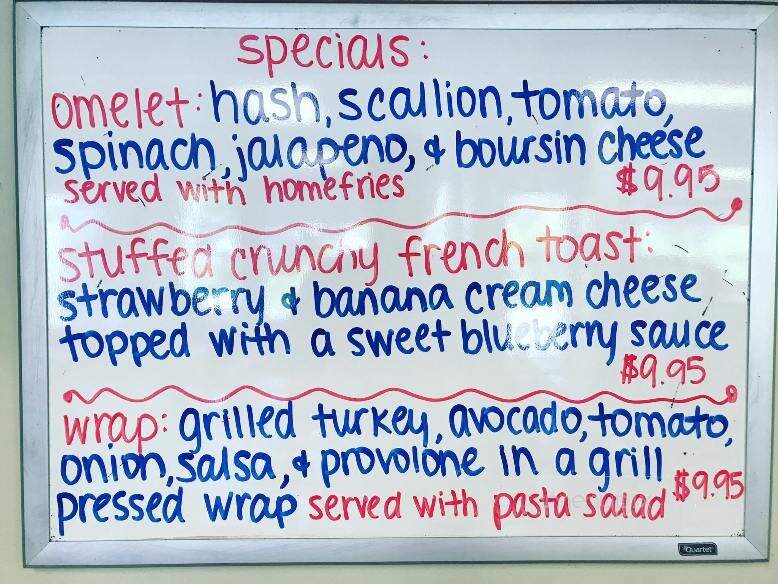 specials:
omelet: hash, scallion, tomato,
spinach, jalapeno, & boursin cheese
served with homefries $9.95
stuffed crunchy french toast:
strawberry & banana cream cheese
topped with a sweet blueberry sauce
$9.95
wrap: grilled turkey, avocado, tomato,
onion, salsa, & provolone in a grill
pressed wrap served with pasta salad $9.95
Quartet